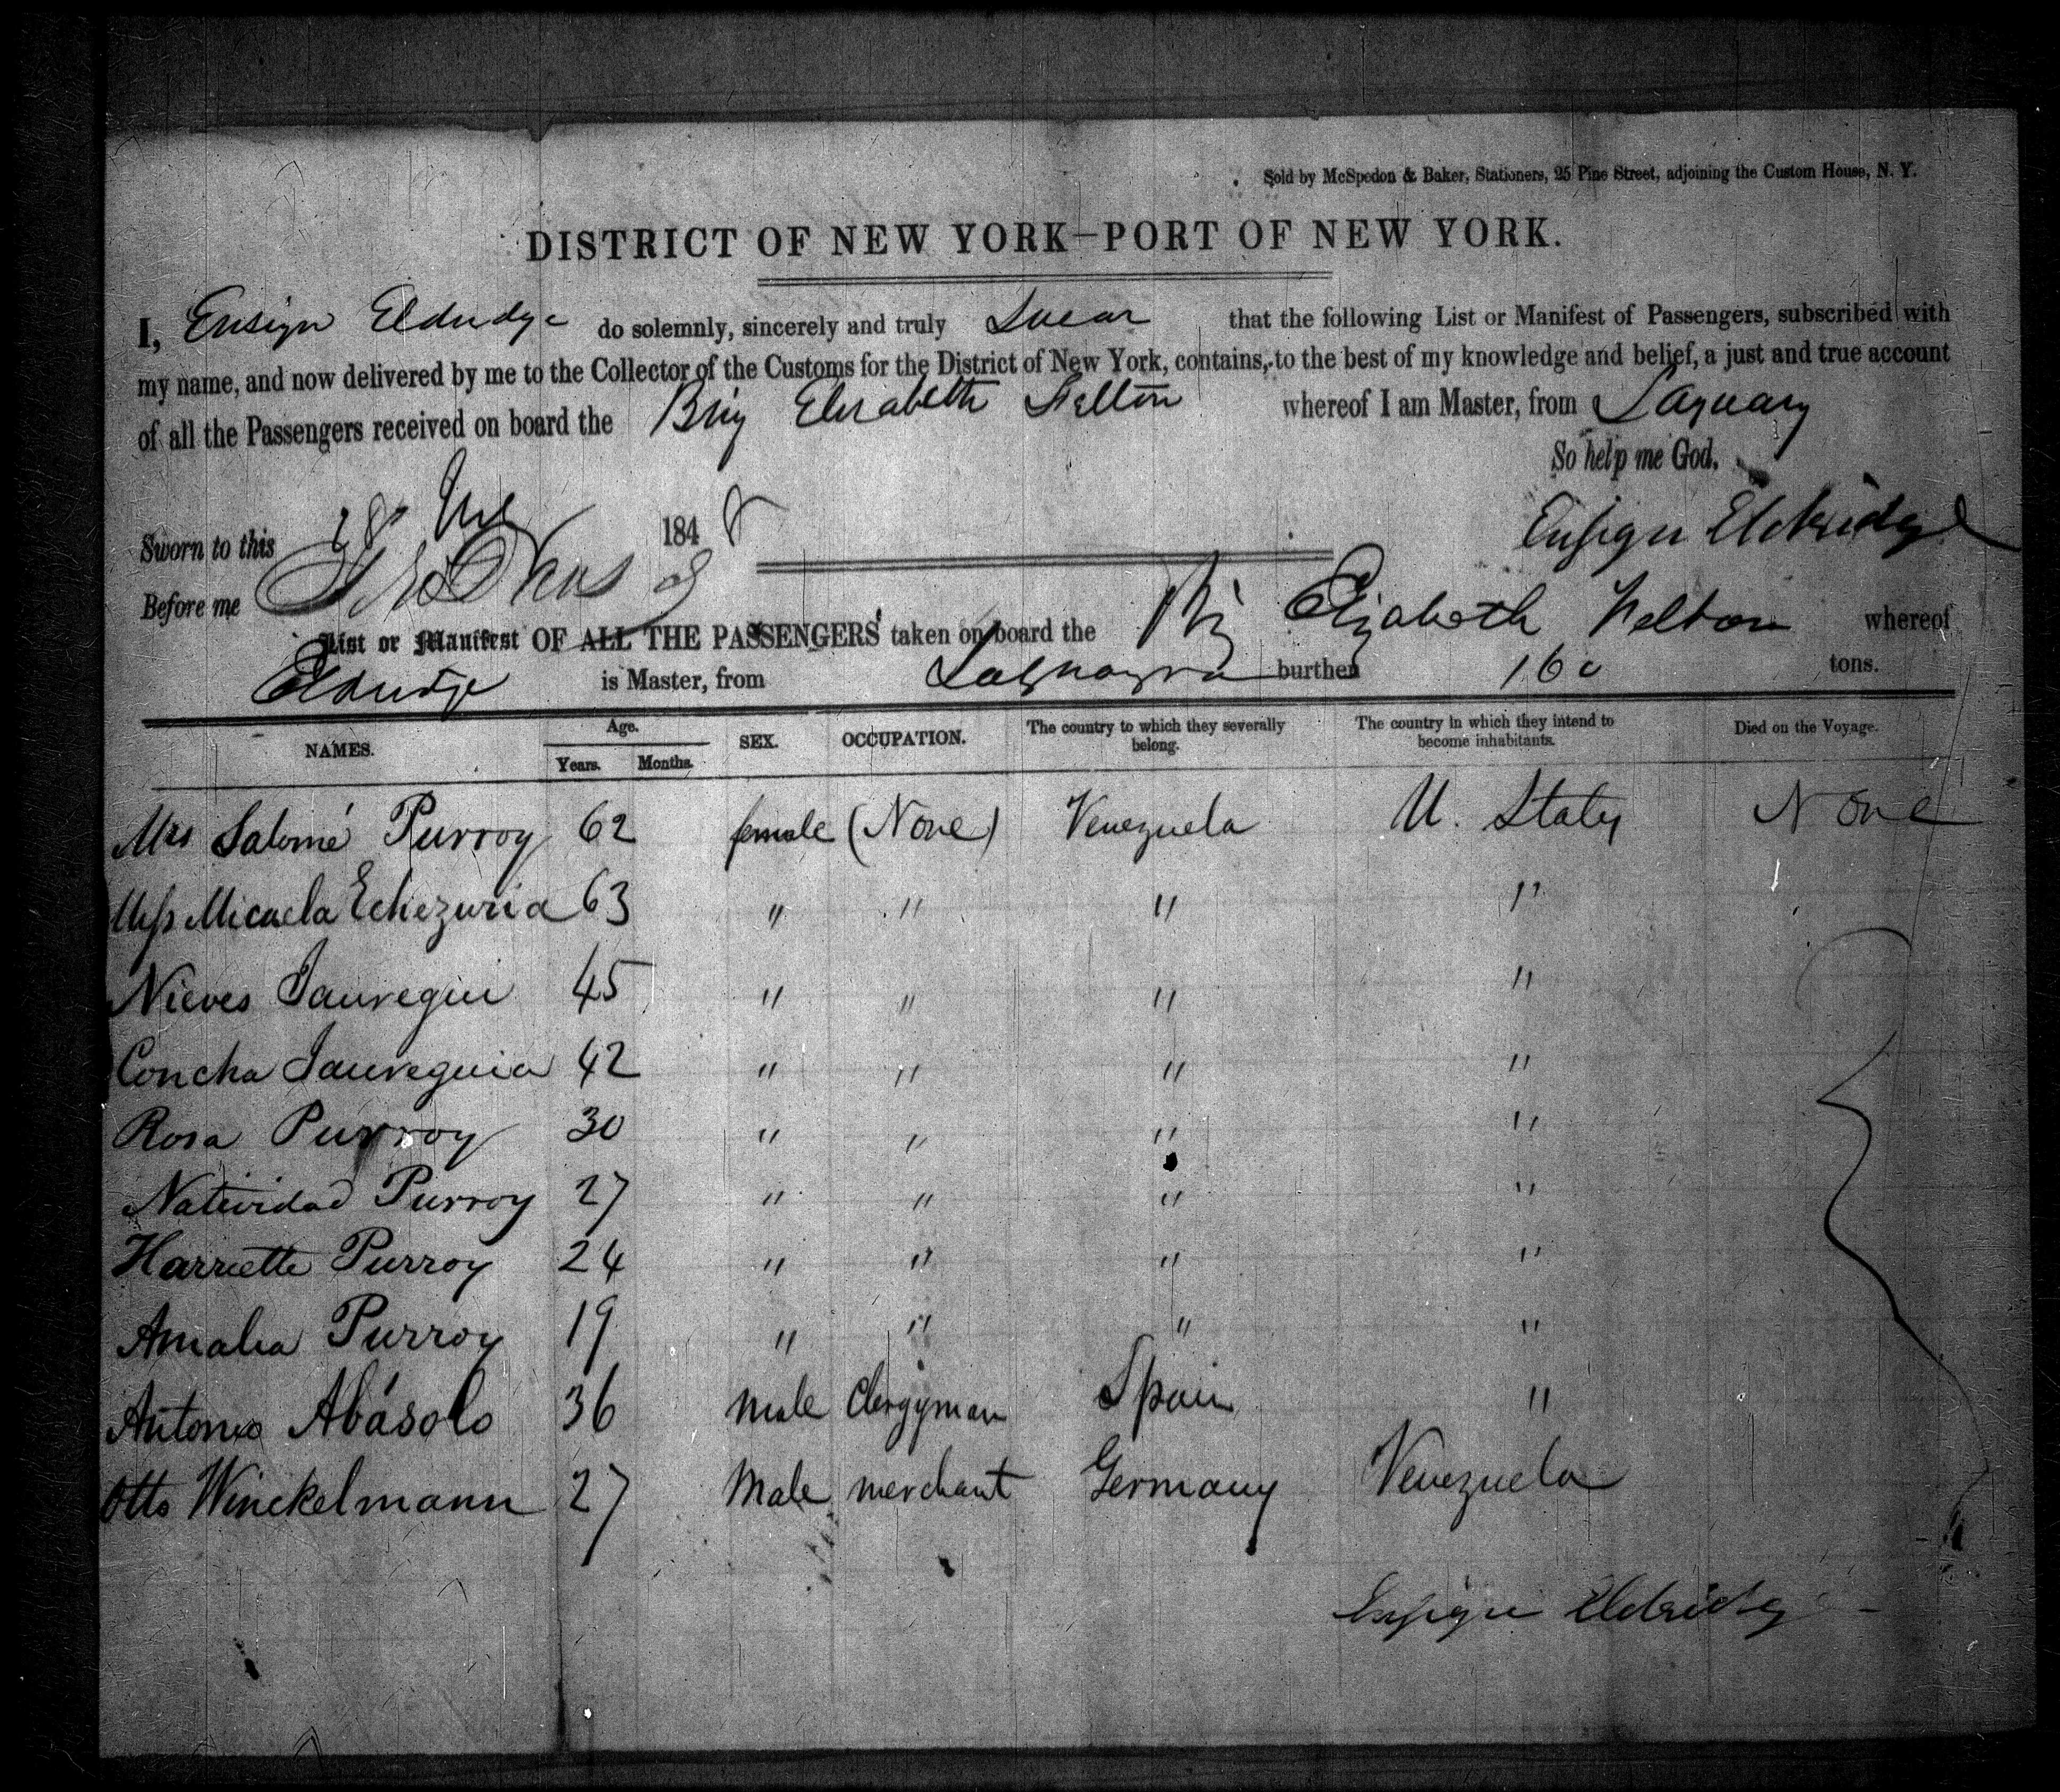 Sold by McSpedon & Baker, Stationers, 25 Pine Street, adjoining the Custom House, N. Y.
DISTRICT OF NEW YORK—PORT OF NEW YORK.
I, Ensign Eldridge do solemnly, sincerely and truly Swear that the following List or Manifest of Passengers, subscribed with
my name, and now delivered by me to the Collector of the Customs for the District of New York, contains, to the best of my knowledge and belief, a just and true account
of all the Passengers received on board the Brig Elizabeth Felton whereof I am Master, from Laguary
So help me God.
Sworn to this 28 1848 Ensign Eldridge
Before me
List or Manifest OF ALL THE PASSENGERS taken on board the Brig Elizabeth Felton whereof
Eldridge is Master, from Laguayra burthen 160 tons.
NAMES. Age. Years. Months. SEX. OCCUPATION. The country to which they severally belong. The country in which they intend to become inhabitants. Died on the Voyage.
Mrs Salomé Purroy 62 female (None) Venezuela U. States None
Miss Micaela Echezuria 63 " " " "
Nieves Jauregui 45 " " " "
Concha Jaureguia 42 " " " "
Rosa Purroy 30 " " " "
Natividad Purroy 27 " " " "
Harriette Purroy 24 " " " "
Amalia Purroy 19 " " " "
Antonio Abásolo 36 male Clergyman Spain "
Otto Winckelmann 27 Male merchant Germany Venezuela
Ensign Eldridge